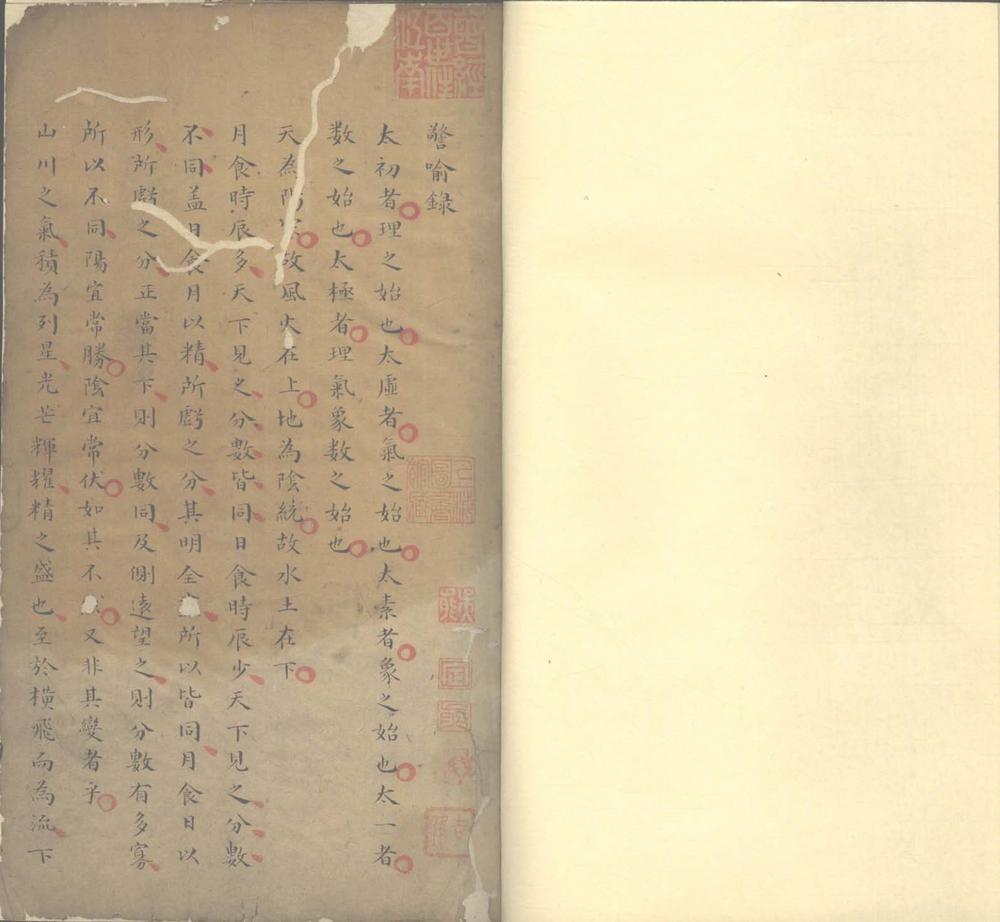 警喻錄
太初者理之始也太虛者氣之始也太素者象之始也太一者
数之始也太極者理氣象数之始也
天為陽故風火在上地為陰統故水土在下
月食時辰多天下見之分數皆同日食時辰少天下見之分數
不同盖日食月以精所虧之分其明全所以皆同月食日以
形所虧之分正當其下則分數同及側遠望之則分數有多寡
所以不同陽宜常勝陰宜常伏如其不又非其變者乎
山川之氣積為列星光芒輝耀精之盛也至於橫飛而為流下